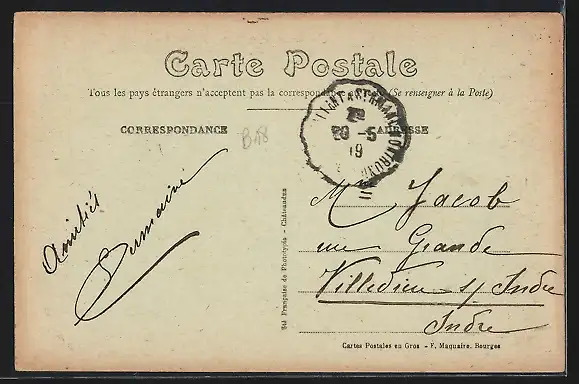 Carte Postale
Tous les pays étrangers n'acceptent pas la correspondance au (Se renseigner à la Poste)
CORRESPONDANCE
ADRESSE
B48
20 -5
19
Amitiés
Germaine
M Jacob
rue Grande
Villedieu s/ Indre
Indre
Sté Française de Phototypie - Châteauroux
Cartes Postales en Gros - F. Maquaire, Bourges